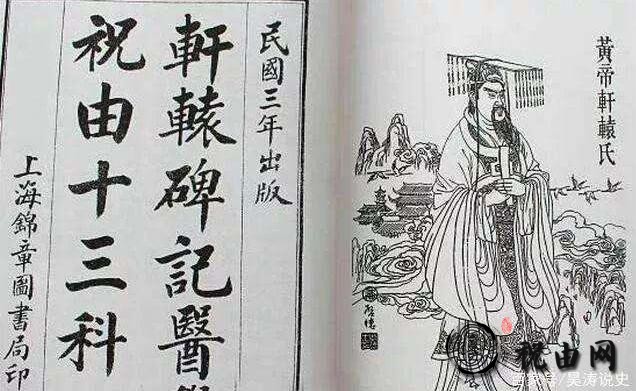 民國三年出版
軒轅碑記醫
祝由十三科
上海錦章圖書局印
黃帝軒轅氏
祝由网
百家号/吴涛说史